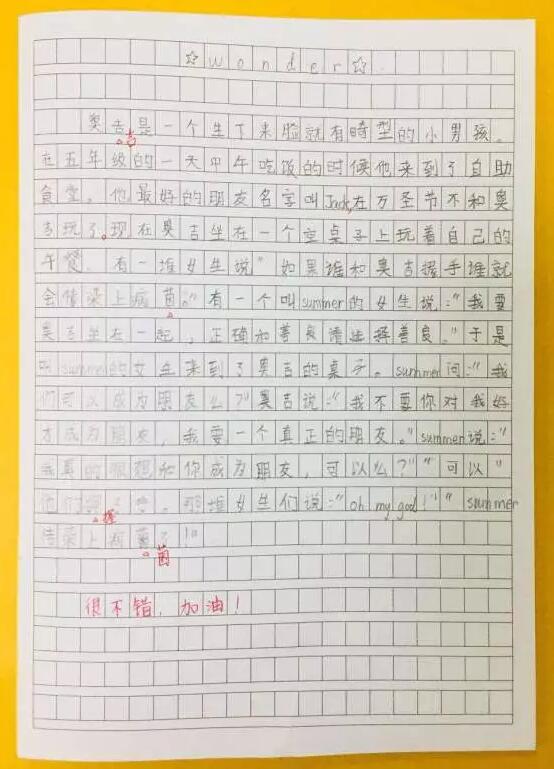 ☆wonder☆
奥吉是一个生下来脸就有畸型的小男孩。
吉
在五年级的一天中午吃饭的时候他来到了自助
食堂。他最好的朋友名字叫Jack,在万圣节不和奥
吉玩了。现在奥吉坐在一个空桌子上玩着自己的
午餐。有一堆女生说"如果谁和奥吉握手谁就
会传染上病菌。"有一个叫summer的女生说:"我要
奥吉坐在一起,正确和善良请选择善良。"于是
叫summer的女生来到了奥吉的桌子。summer问:"我
们可以成为朋友么?"奥吉说:"我不要你对我好
才成为朋友,我要一个真正的朋友。"summer说:"
我真的很想和你成为朋友,可以么?""可以"
他们握了手。那堆女生们说:"oh my god!""summer
握
传染上病菌了!"
菌
很不错,加油!